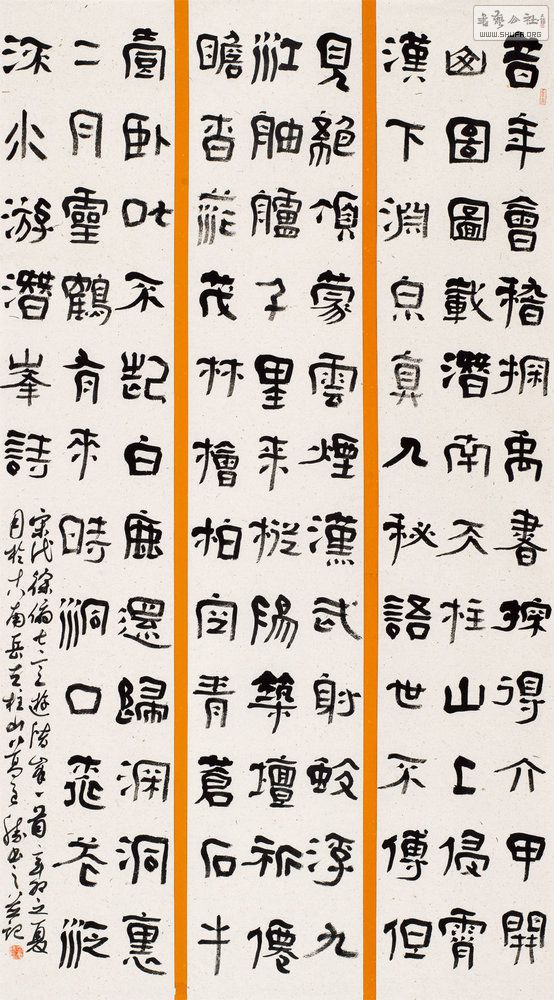 昔年會稽探禹書探得六甲開
函圖圖載潛南天柱山上侵霄
漢下淵泉真人秘語世不傳但
見絕頂蒙雲煙漢武射蛟浮九
江舳艫千里來樅陽築壇祈僊
瞻杳茫茂林檜柏空青蒼石牛
壹卧叱不起白鹿還歸深洞裏
二月靈鶴有來時洞口桃花泛
流水游潛峯詩
宋代徐俯七言遊潛峯一首辛卯之夏
月於古南岳天柱山下書之并記
WWW.SHUFA.ORG